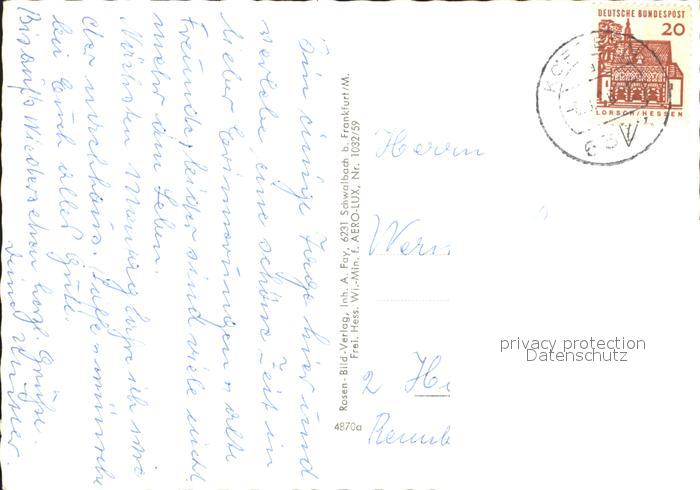 Bin einige Tage hier und
verlebe eine schöne Zeit in
lieber Erinnerungen u. alte
Freunde, leider sind viele nicht
mehr am Leben.
Nächsten Montag fahre ich
der nachhaus. Ich wünsche
bei Euch alles Gute.
Bis aufs Wiedersehen herzl. Grüße.
Rosen-Bild-Verlag, Inh. A. Fay, 6231 Schwalbach b. Frankfurt/M.
Frei. Hess. Wi.-Min. f. AERO-LUX, Nr. 1032/59
4870a
DEUTSCHE BUNDESPOST
20
LORSCH/HESSEN
Herrn
Wern
2 H
privacy protection
Datenschutz